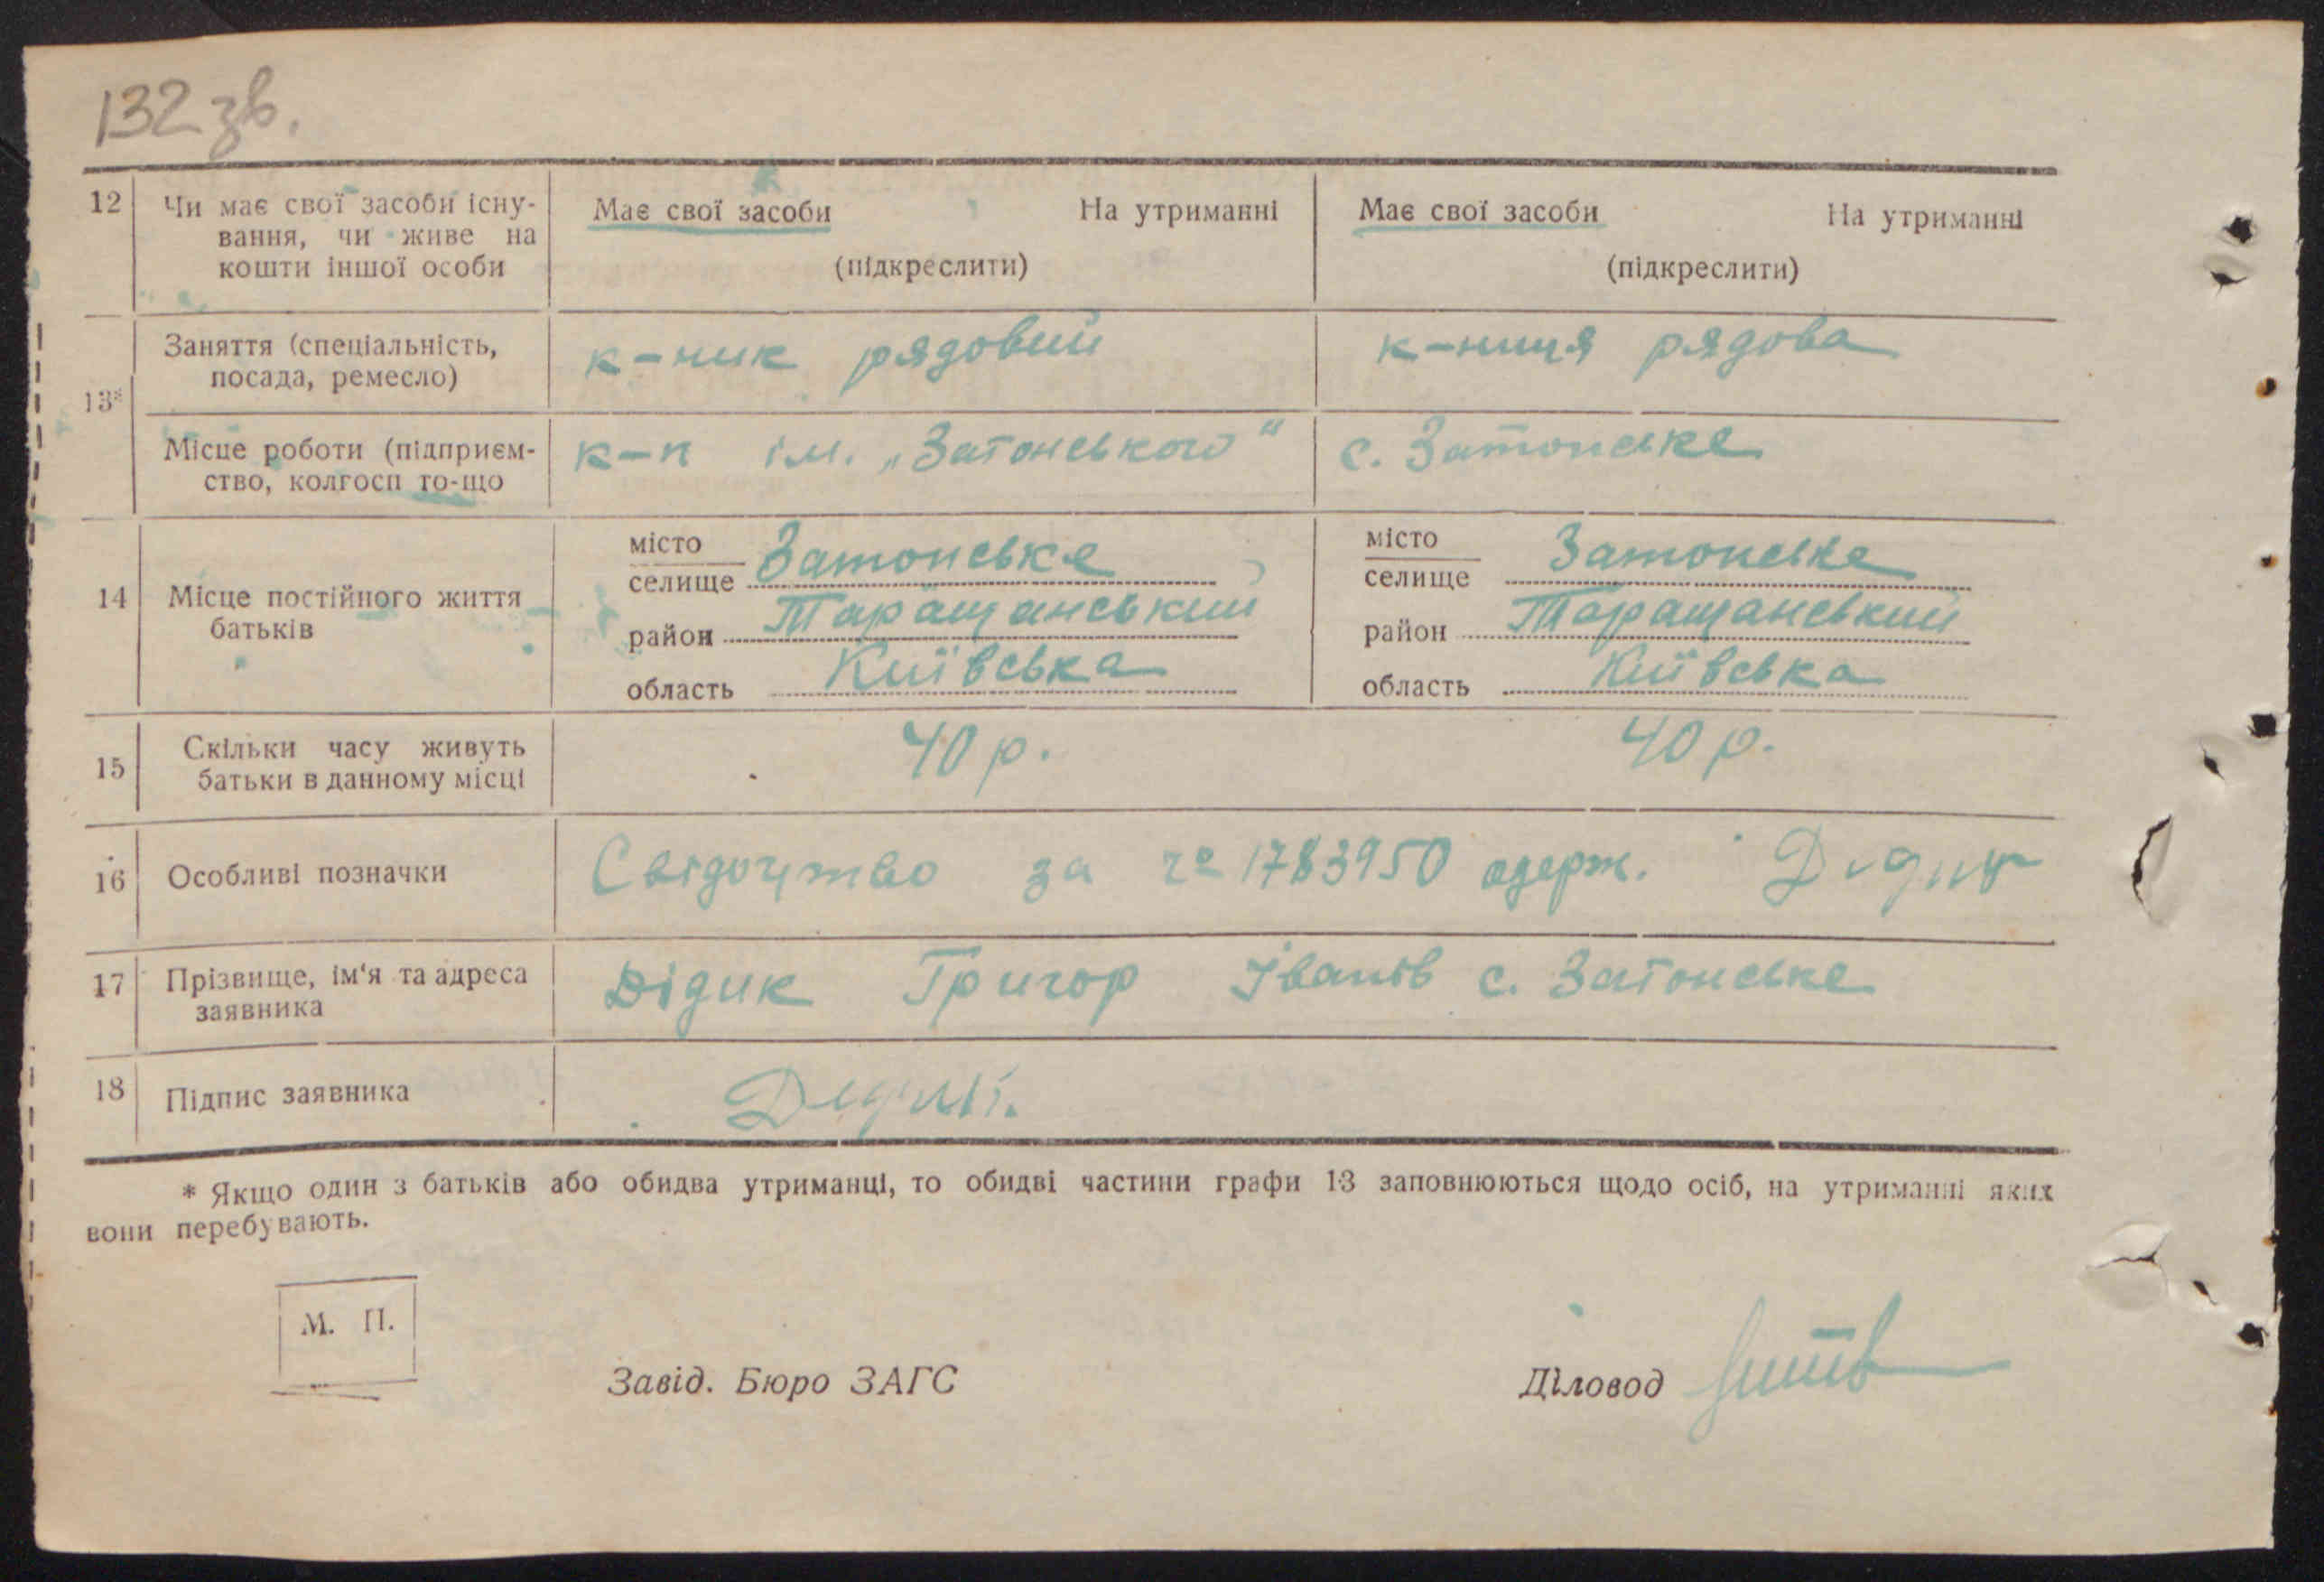 132 зв.
12 Чи має свої засоби існу-
вання, чи живе на
кошти іншої особи
Має свої засоби На утриманні
(підкреслити)
Має свої засоби На утриманні
(підкреслити)
13* Заняття (спеціальність,
посада, ремесло)
к-ник рядовий
к-ниця рядова
Місце роботи (підприєм-
ство, колгосп то-що
к-п ім. „Затонського"
с. Затонське
14 Місце постійного життя
батьків
місто
селище Затонське
район Таращанський
область Київська
місто
селище Затонське
район Таращанський
область Київська
15 Скільки часу живуть
батьки в данному місці
40 р.
40 р.
16 Особливі позначки
Свідоцтво за № 1783950 одерж.
17 Прізвище, ім'я та адреса
заявника
Дідик Григор Іванів с. Затонське
18 Підпис заявника
* Якщо один з батьків або обидва утриманці, то обидві частини графи 13 заповнюються щодо осіб, на утриманні яких
вони перебувають.
М. П.
Завід. Бюро ЗАГС
Діловод